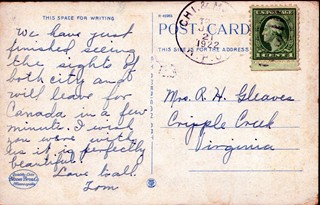 THIS SPACE FOR WRITING
POST CARD
THIS SPACE FOR THE ADDRESS
1922
We have just
finished seeing
the sights of
both city and
will leave for
Canada in a few
minute. I wish
you were with
us it is perfectly
beautiful
Love to all.
Tom
Mrs. R. H. Gleaves
Cripple Creek
Virginia